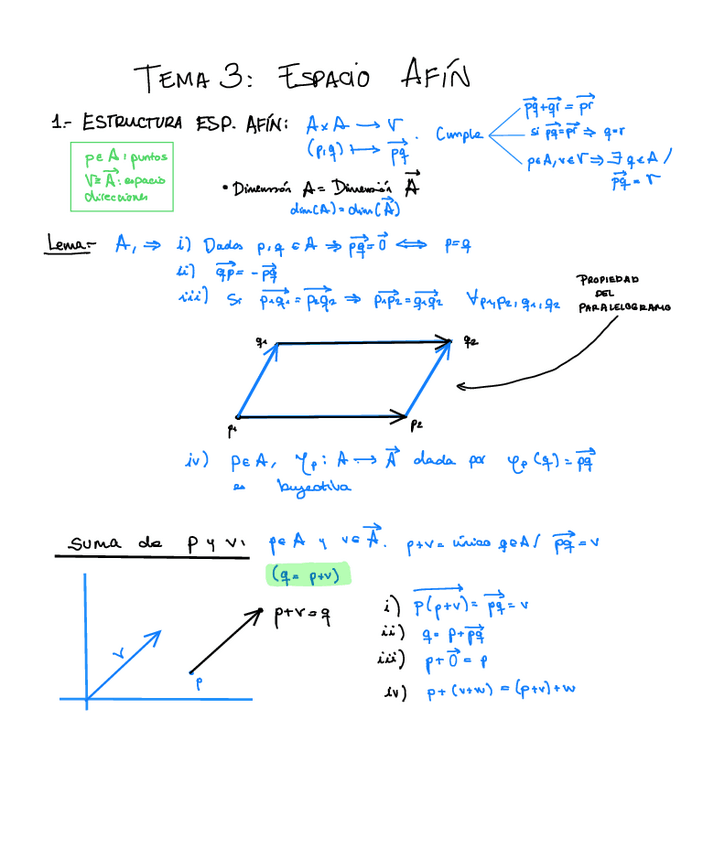 TEMA 3: ESPACIO AFÍN
1.- ESTRUCTURA ESP. AFÍN: A×A → V
(p,q) ↦ \overrightarrow{pq}. Cumple
\overrightarrow{pq}+\overrightarrow{qr} = \overrightarrow{pr}
si \overrightarrow{pq}=\overrightarrow{pr} ⇒ q=r
p∈A, v∈V ⇒ ∃ q∈A /
\overrightarrow{pq} = v
p∈A: puntos
V≡\overrightarrow{A}: espacio
direcciones
• Dimensión A = Dimensión \overrightarrow{A}
dim(A) = dim(\overrightarrow{A})
Lema:- A, ⇒ i) Dados p,q ∈ A ⇒ \overrightarrow{pq}=\overrightarrow{0} ⟺ p=q
ii) \overrightarrow{qp} = -\overrightarrow{pq}
iii) Si \overrightarrow{p_1q_1} = \overrightarrow{p_2q_2} ⇒ \overrightarrow{p_1p_2} = \overrightarrow{q_1q_2} ∀p_1,p_2,q_1,q_2
PROPIEDAD
DEL
PARALELOGRAMO
q_1 q_2
p_1 p_2
iv) p∈A, φ_p: A → \overrightarrow{A} dada por φ_p(q) = \overrightarrow{pq}
es biyectiva
suma de p y v: p∈A y v∈\overrightarrow{A}. p+v = único q∈A / \overrightarrow{pq} = v
(q = p+v)
v
p
p+v=q
i) \overrightarrow{p(p+v)} = \overrightarrow{pq} = v
ii) q = p+\overrightarrow{pq}
iii) p+\overrightarrow{0} = p
iv) p+(v+w) = (p+v)+w